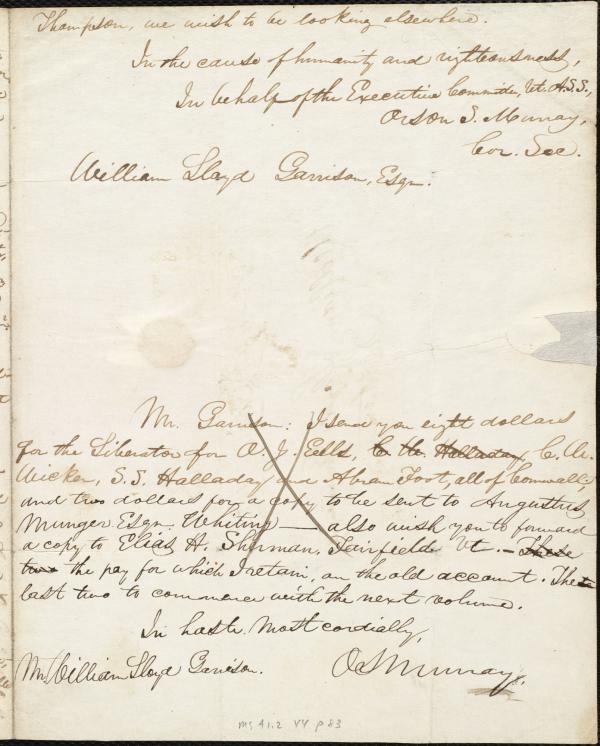 Thompson, we wish to be looking elsewhere.
In the cause of humanity and righteousness,
In behalf of the Executive Committee, Vt. A.S.S.,
Orson S. Murray,
Cor. Sec.
William Lloyd Garrison, Esqr.
Mr. Garrison: I send you eight dollars
for the Liberator for A. J. Eells, C. W. Halladay, C. W.
Wicker, S. S. Halladay and Abram Foot, all of Cornwall;
and two dollars for a copy to be sent to Augustus
Munger Esqr. Whiting — also wish you to forward
a copy to Elias H. Sherman, Fairfield Vt. — These
two the pay for which I retain, on the old account. The
last two to commence with the next volume.
In haste, Most cordially,
Mr. William Lloyd Garrison. O S Murray,
Ms. A.1.2 V4 p 83